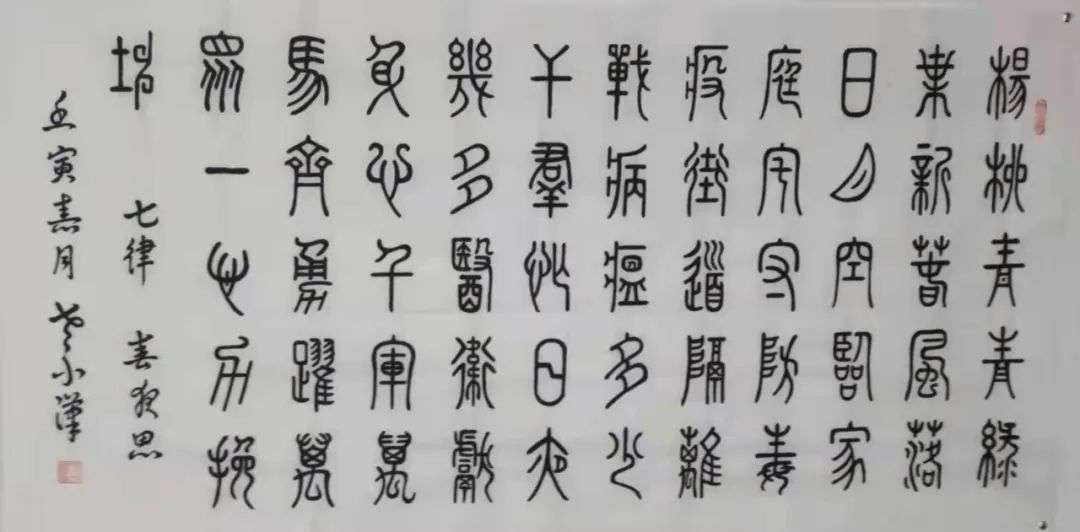 楊柳青青綠
葉新春風落
日月空臨家
庭宇守防毒
疫街道隔離
戰病瘟多少
干羣忙日夜
幾多醫衛獻
身心千軍萬
馬齊勇躍萬
眾一心力挽
坤
七律 春夜思
壬寅嘉月